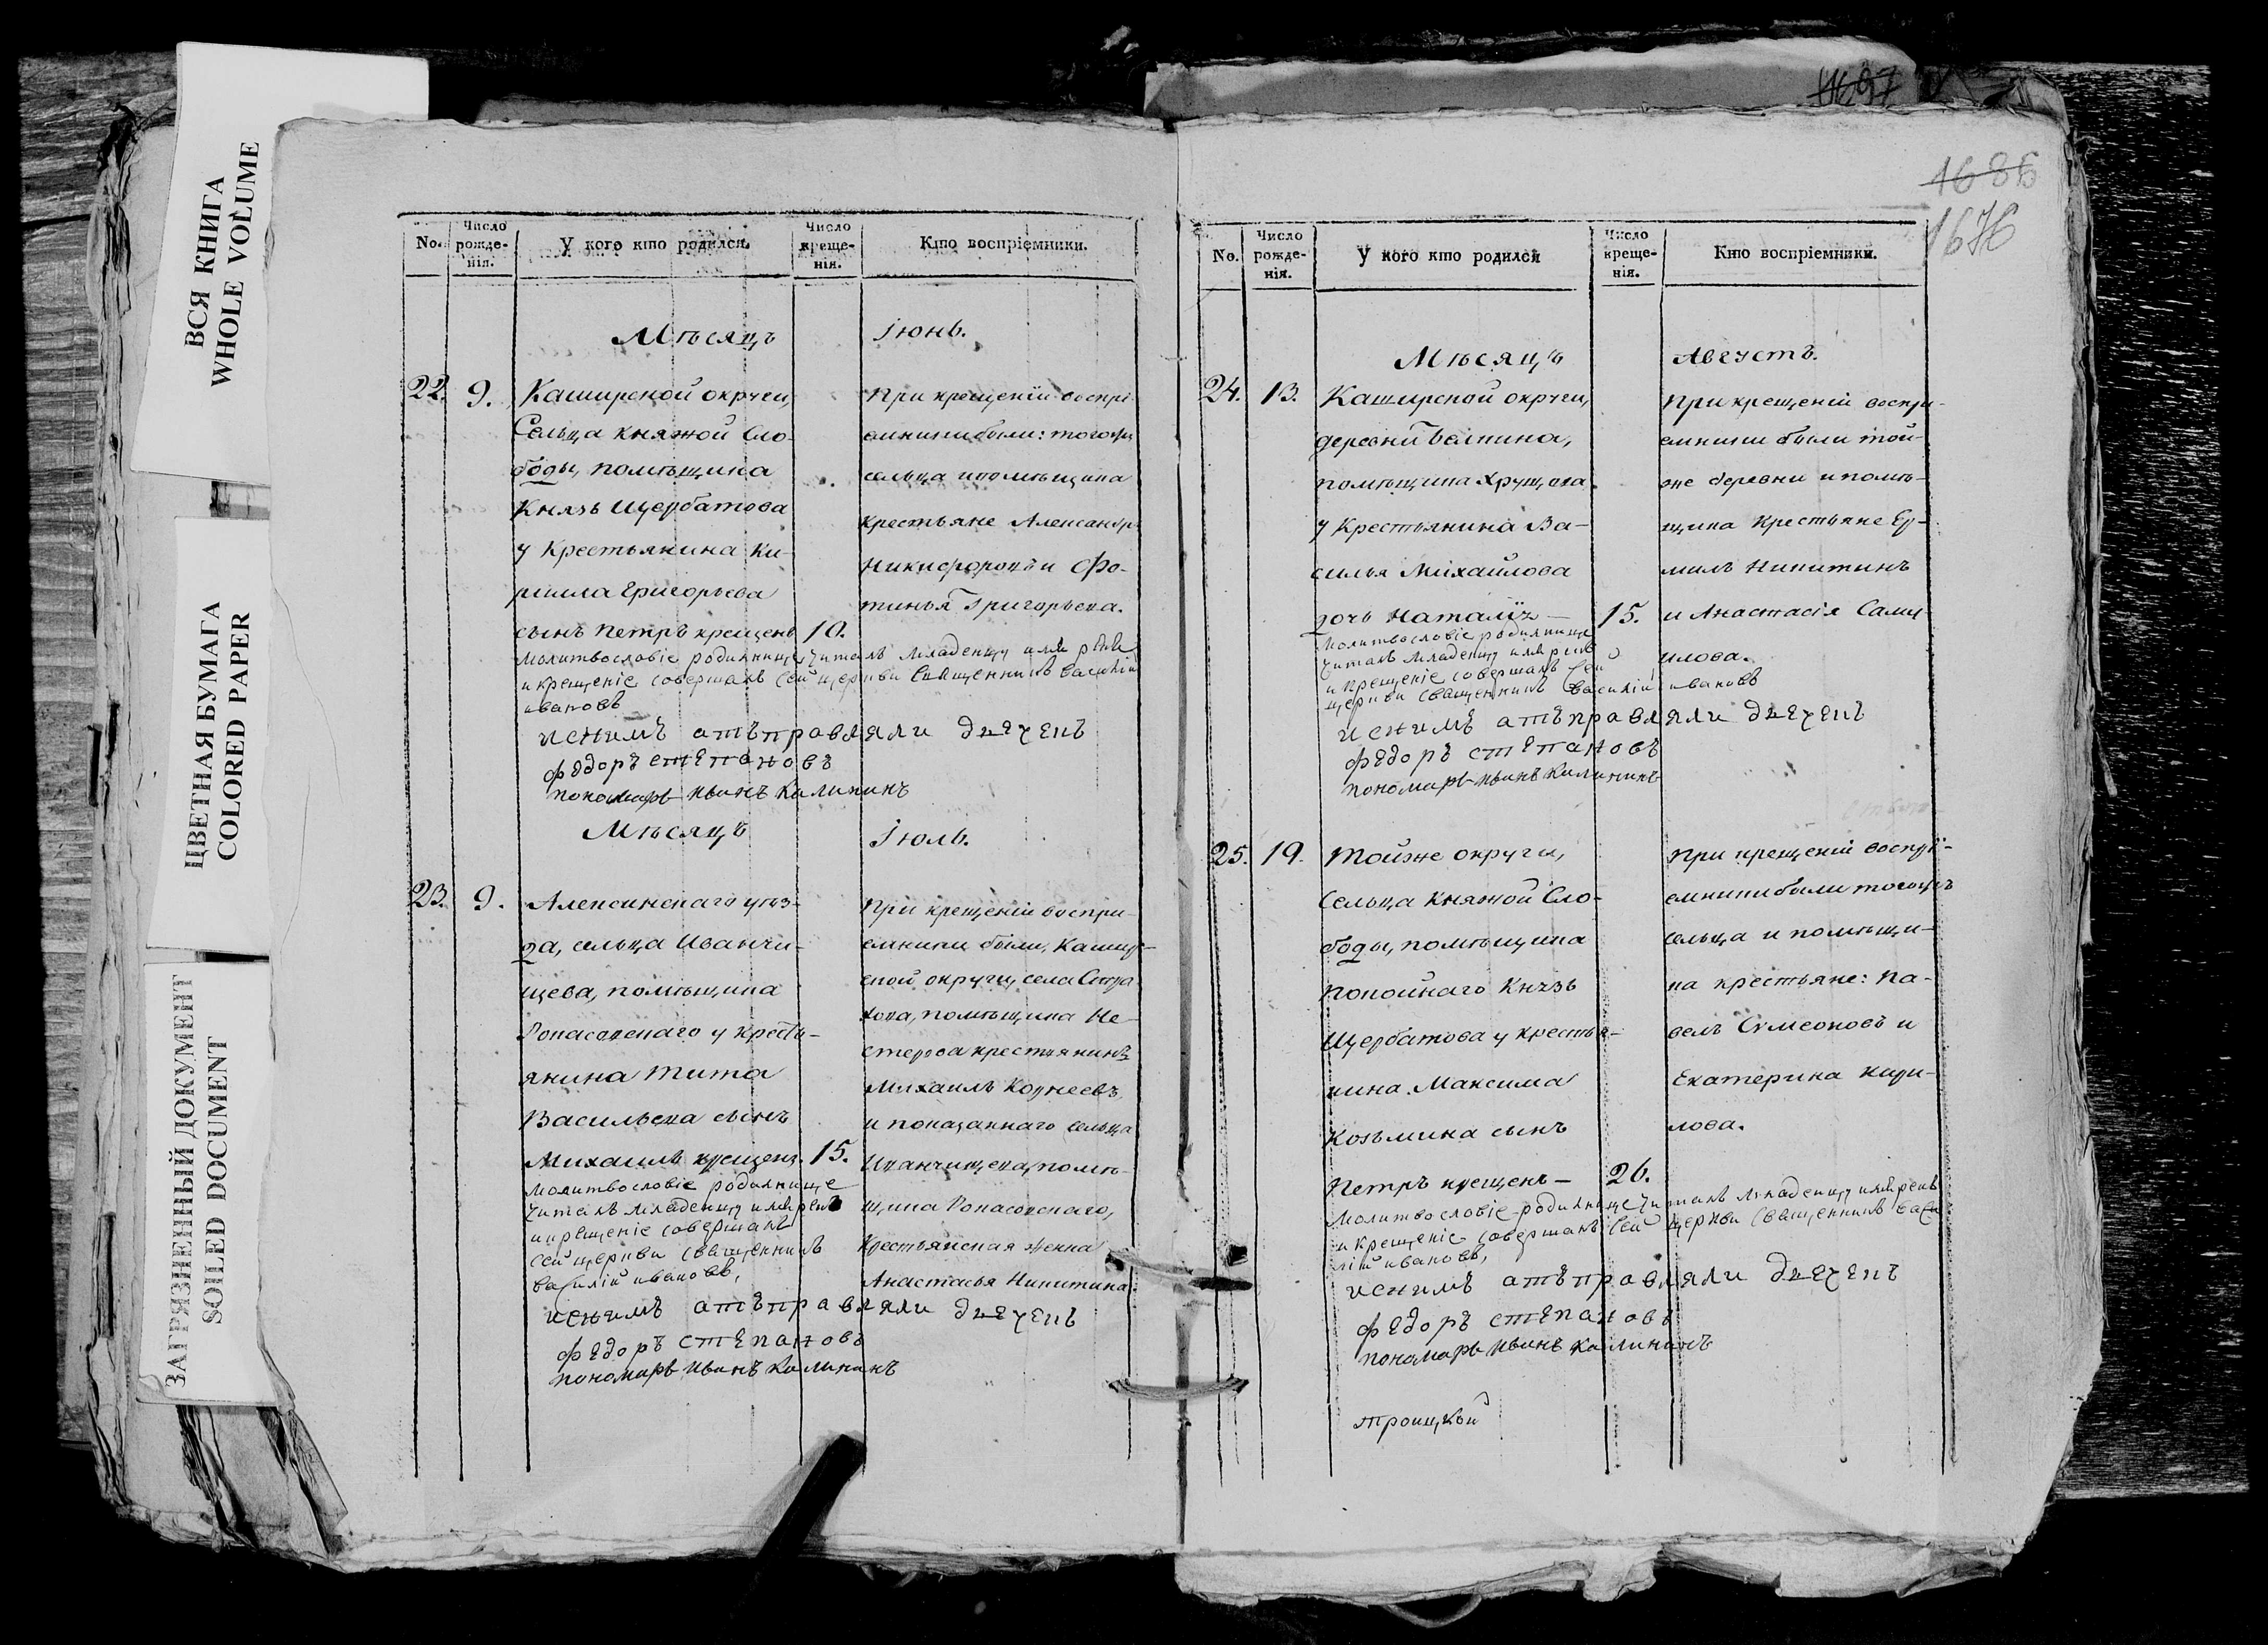 ВСЯ КНИГА
WHOLE VOLUME
ЦВЕТНАЯ БУМАГА
COLORED PAPER
ЗАГРЯЗНЕННЫЙ ДОКУМЕНТ
SOILED DOCUMENT
No. Число рожденія. У кого кто родился. Число крещенія. Кто воспріемники.
Мѣсяцъ Іюнь.
22. 9. Каширской округи,
Сельца Княжой Сло-
боды, помѣщика
Князь Щербатова
у Крестьянина Ки-
рилла Григорьева
сынъ Петръ крещенъ 10.
При крещеніи воспрі-
емники были: тогожъ
сельца и помѣщика
крестьяне Александръ
Никифоровъ и Фо-
тинья Григорьева.
Молитвословіе родилнице читалъ младенцу имя
и крещеніе совершалъ Сей церкви Священникъ Василій
ивановъ
иснимъ атъправляли дьечекъ
федоръ степановъ
пономарь Иванъ Калининъ
Мѣсяцъ Іюль.
23. 9. Алексинскаго уѣз-
да, сельца Иванчи-
щева, помѣщика
у кресть-
янина Тита
Васильева сынъ
Михаилъ крещенъ. 15.
При крещеніи воспри-
емники были, Кашир-
ской округи, села Стра
хова, помѣщика Не-
стерова крестьянинъ
Михаилъ Корнеевъ,
и показаннаго сельца
Иванчищева, помѣ-
щика
Крестьянская женка
Анастасья Никитина.
Молитвословіе родилнице
читалъ младенцу имя рекъ
и крещеніе совершалъ
Сей церкви Священникъ
Василій ивановъ,
иснимъ атъправляли дьечекъ
федоръ степановъ
пономарь Иванъ Калининъ
1697
1686
1676
No. Число рожденія. У кого кто родился Число крещенія. Кто воспріемники.
Мѣсяцъ Августъ.
24. 13. Каширской округи,
деревни
помѣщика Хрущова
у Крестьянина Ва-
силья Михайлова
дочь Наталія — 15.
При крещеніи воспри-
емники были той-
же деревни и помѣ-
щика Крестьяне Ер-
милъ Никитинъ
и Анастасія Сам
илова.
Молитвословіе родилнице
читалъ младенцу имя рекъ
и крещеніе совершалъ Сей
церкви Священникъ Василій ивановъ
иснимъ атъправляли дьечекъ
федоръ степановъ
пономарь Иванъ Калининъ
25. 19. Тойже округи,
Сельца Княжой Сло-
боды, помѣщика
покойнаго Князь
Щербатова у крестья-
нина Максима
Козьмина сынъ
Петръ крещенъ — 26.
При крещеніи воспрі-
емники были тогожъ
сельца и помѣщи-
ка крестьяне: Па-
велъ Симеоновъ и
Екатерина Кири-
лова.
Молитвословіе родилнице читалъ младенцу имя рекъ
и Крещеніе совершалъ Сей церкви Священникъ Васи
лій ивановъ,
иснимъ атъправляли дьечекъ
федоръ степановъ
пономарь Иванъ Калининъ
троицкой